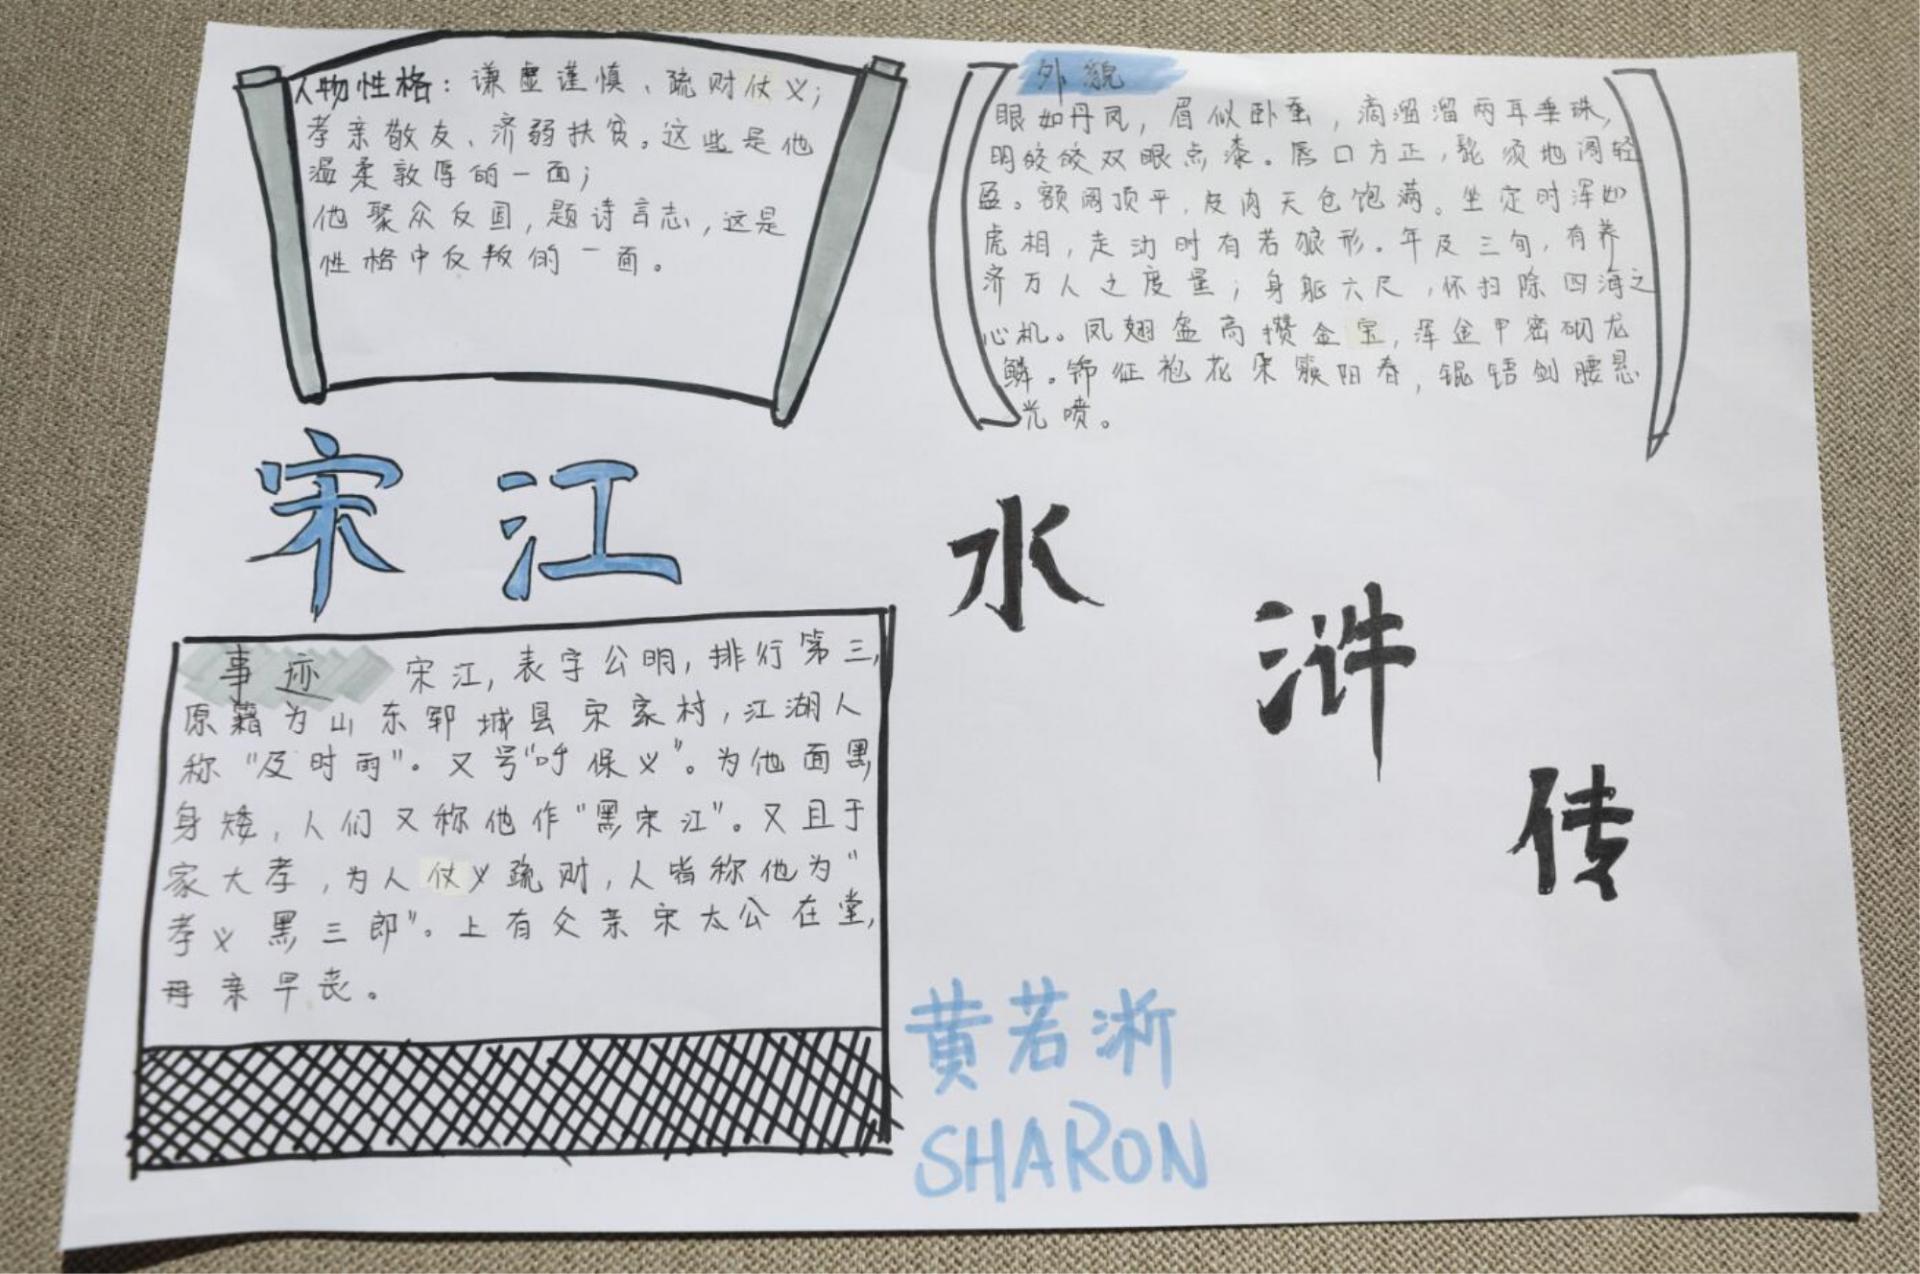 人物性格：谦虚谨慎、疏财仗义；
孝亲敬友、济弱扶贫。这些是他
温柔敦厚的一面；
他聚众反国，题诗言志，这是
性格中反叛的一面。
外貌
眼如丹凤，眉似卧蚕，滴溜溜两耳垂珠，
明皎皎双眼点漆。唇口方正，髭须地阁轻
盈。额阔顶平，皮肉天仓饱满。坐定时浑如
虎相，走动时有若狼形。年及三旬，有养
济万人之度量；身躯六尺，怀扫除四海之
心机。凤翅盔高攒金宝，浑金甲密砌龙
鳞。锦征袍花朵簇阳春，锟铻剑腰悬
光喷。
宋江
水
浒
传
事迹 宋江，表字公明，排行第三，
原籍为山东郓城县宋家村，江湖人
称“及时雨”。又号“呼保义”。为他面黑
身矮，人们又称他作“黑宋江”。又且于
家大孝，为人仗义疏财，人皆称他为“
孝义黑三郎”。上有父亲宋太公在堂，
母亲早丧。
黄若淅
SHARON